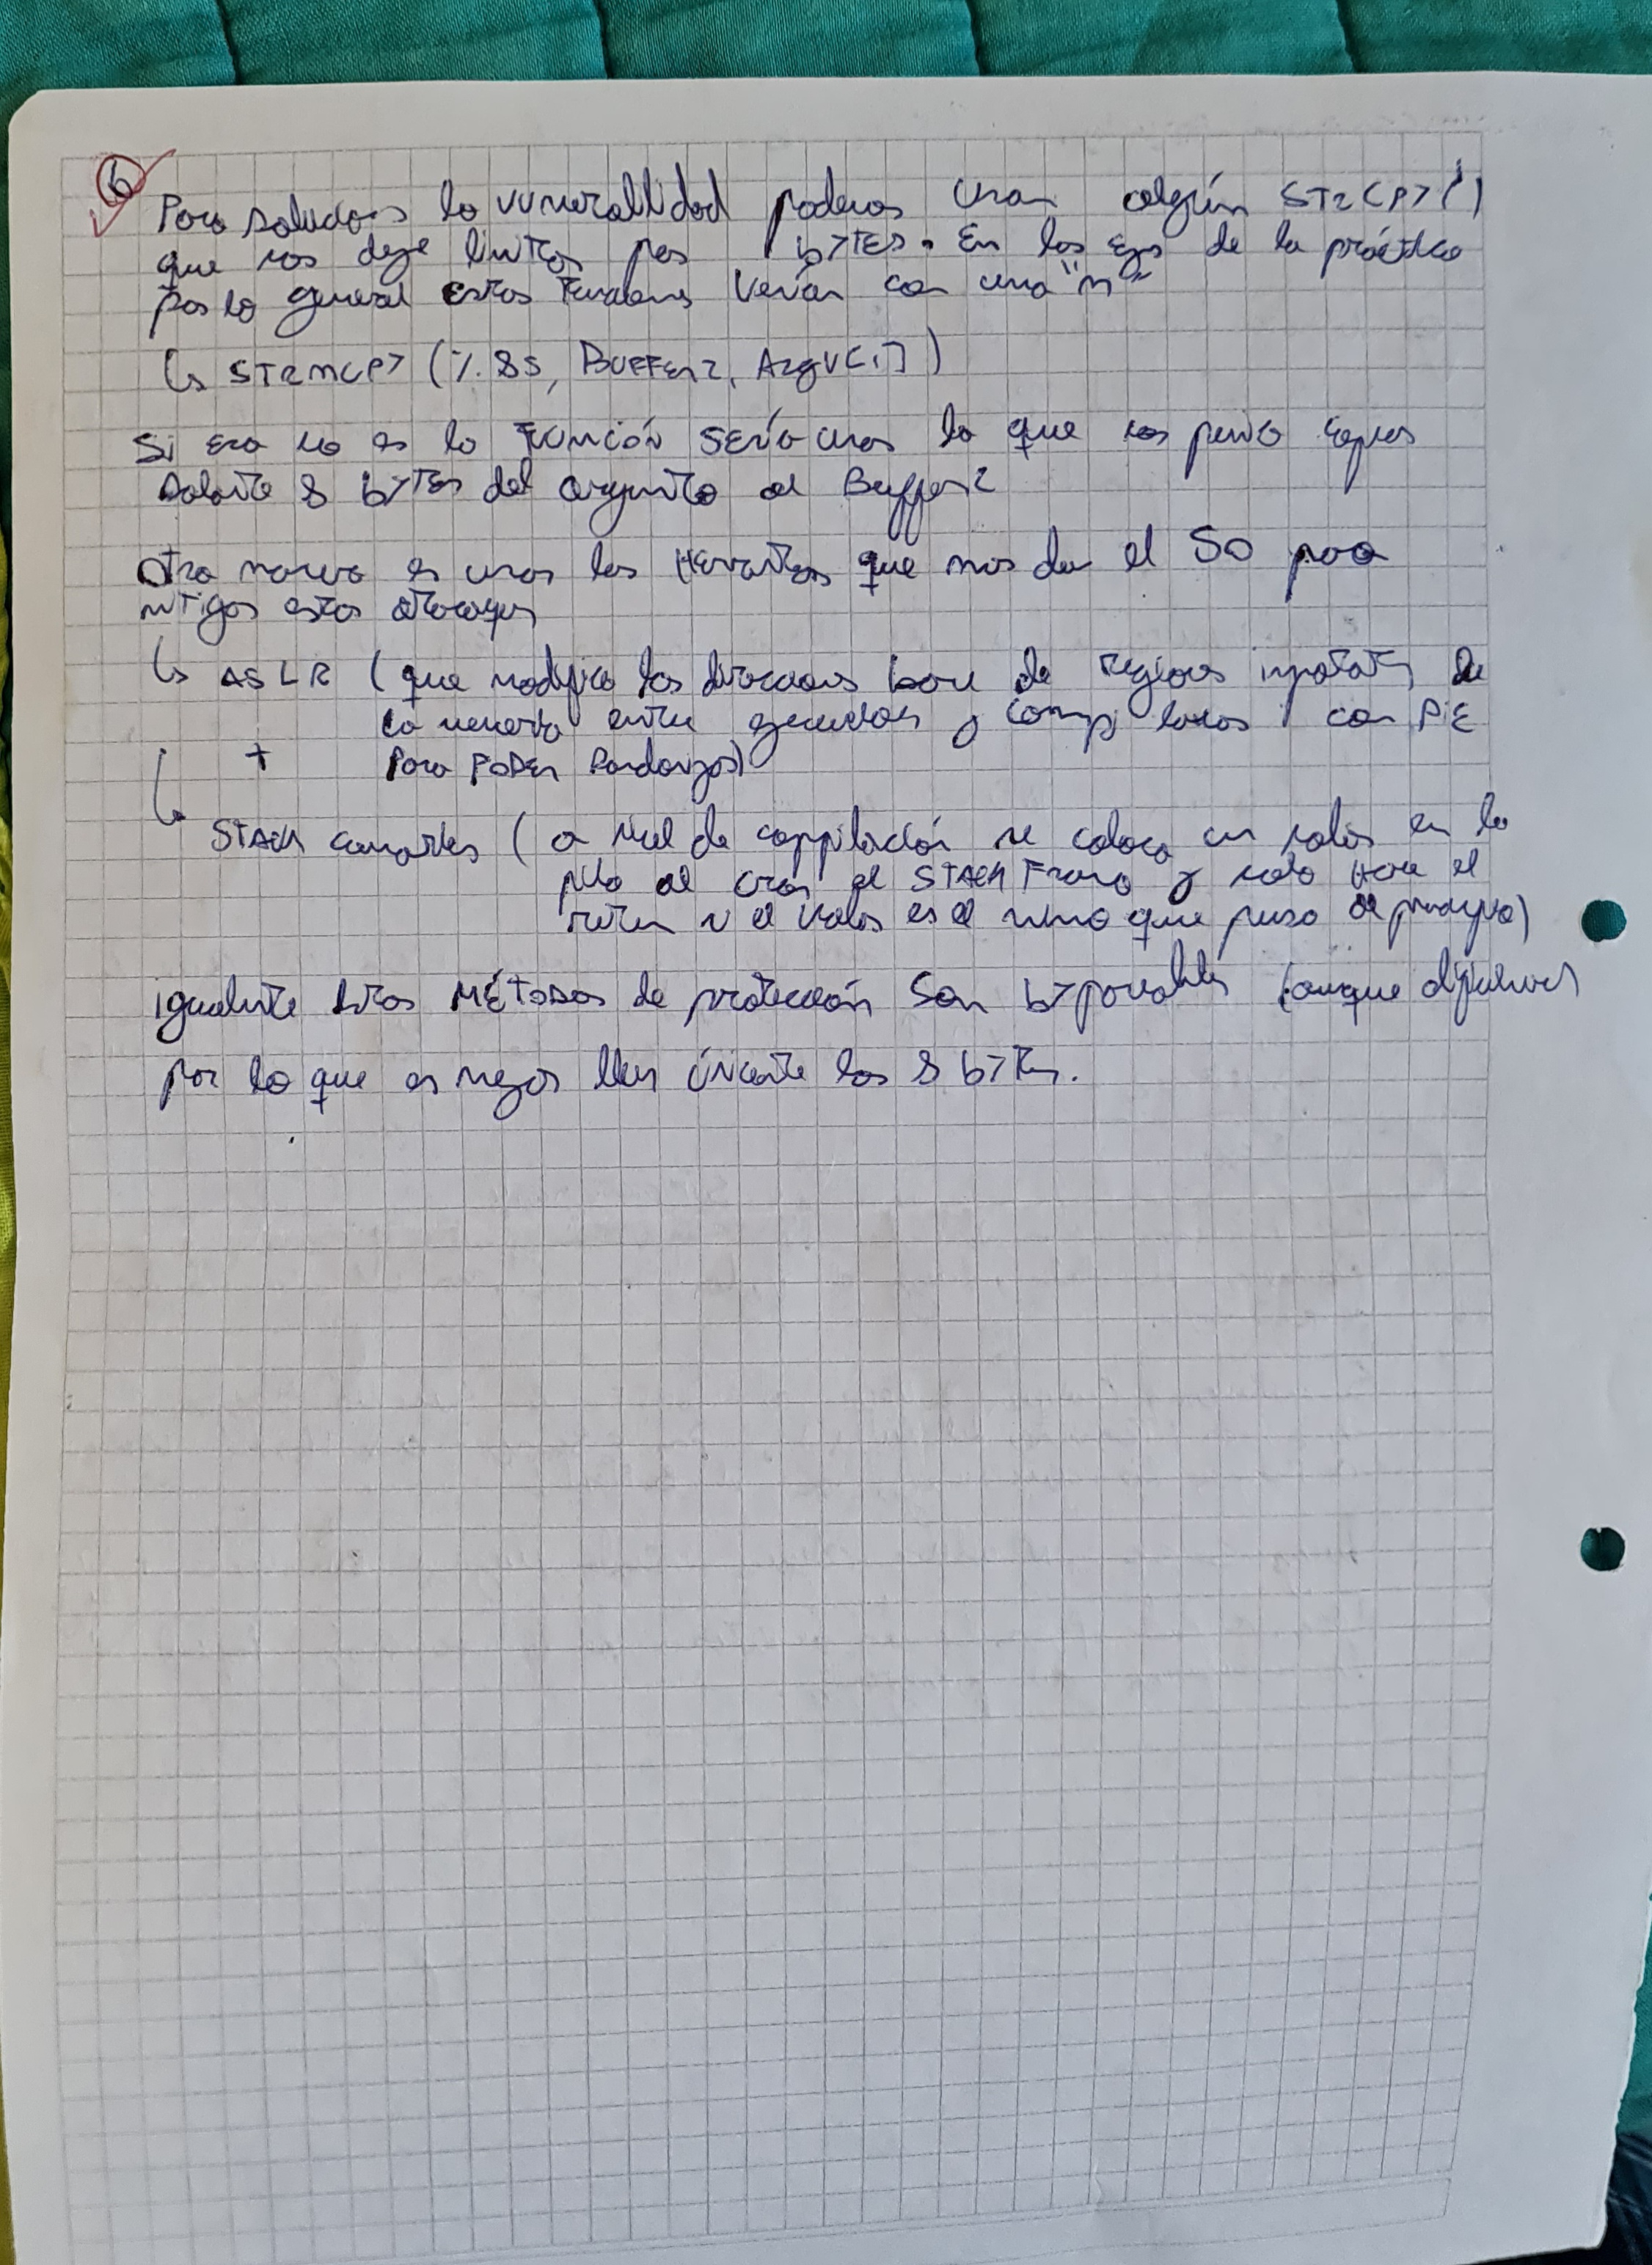 6
Para solucionar la vuneralilidad podemos usar algún STRCPY()
que nos deje limitar por bYTES. En los ejs de la práctica
por lo general estas Funciones Venían con una "n"
↳ STRNCPY (%8s, BUFFER2, ArgV[1])
Si esa no es la FUNCIÓN SERÍA usar la que nos permita copiar
solante 8 bYTES del argumto al Buffer2
otra manera es usar las HErrantas que nos da el SO para
mitigar estos ataques
↳ ASLR (que modifica las direcciones base de regiones impotats de
la memoria entre ejecucions y compilarlos con PiE
+ Para PODER Randomizar)
↳ STACK canaries (a nivel de compilación se coloca un valor en la
pila al crear el STACK Frame y solo Hace el
return si el valor es el mismo que puso al principio)
igualmte estos MÉTODOS de protección Son bYpaseables (aunque
por lo que es mejor leer únicamte los 8 bYTes.